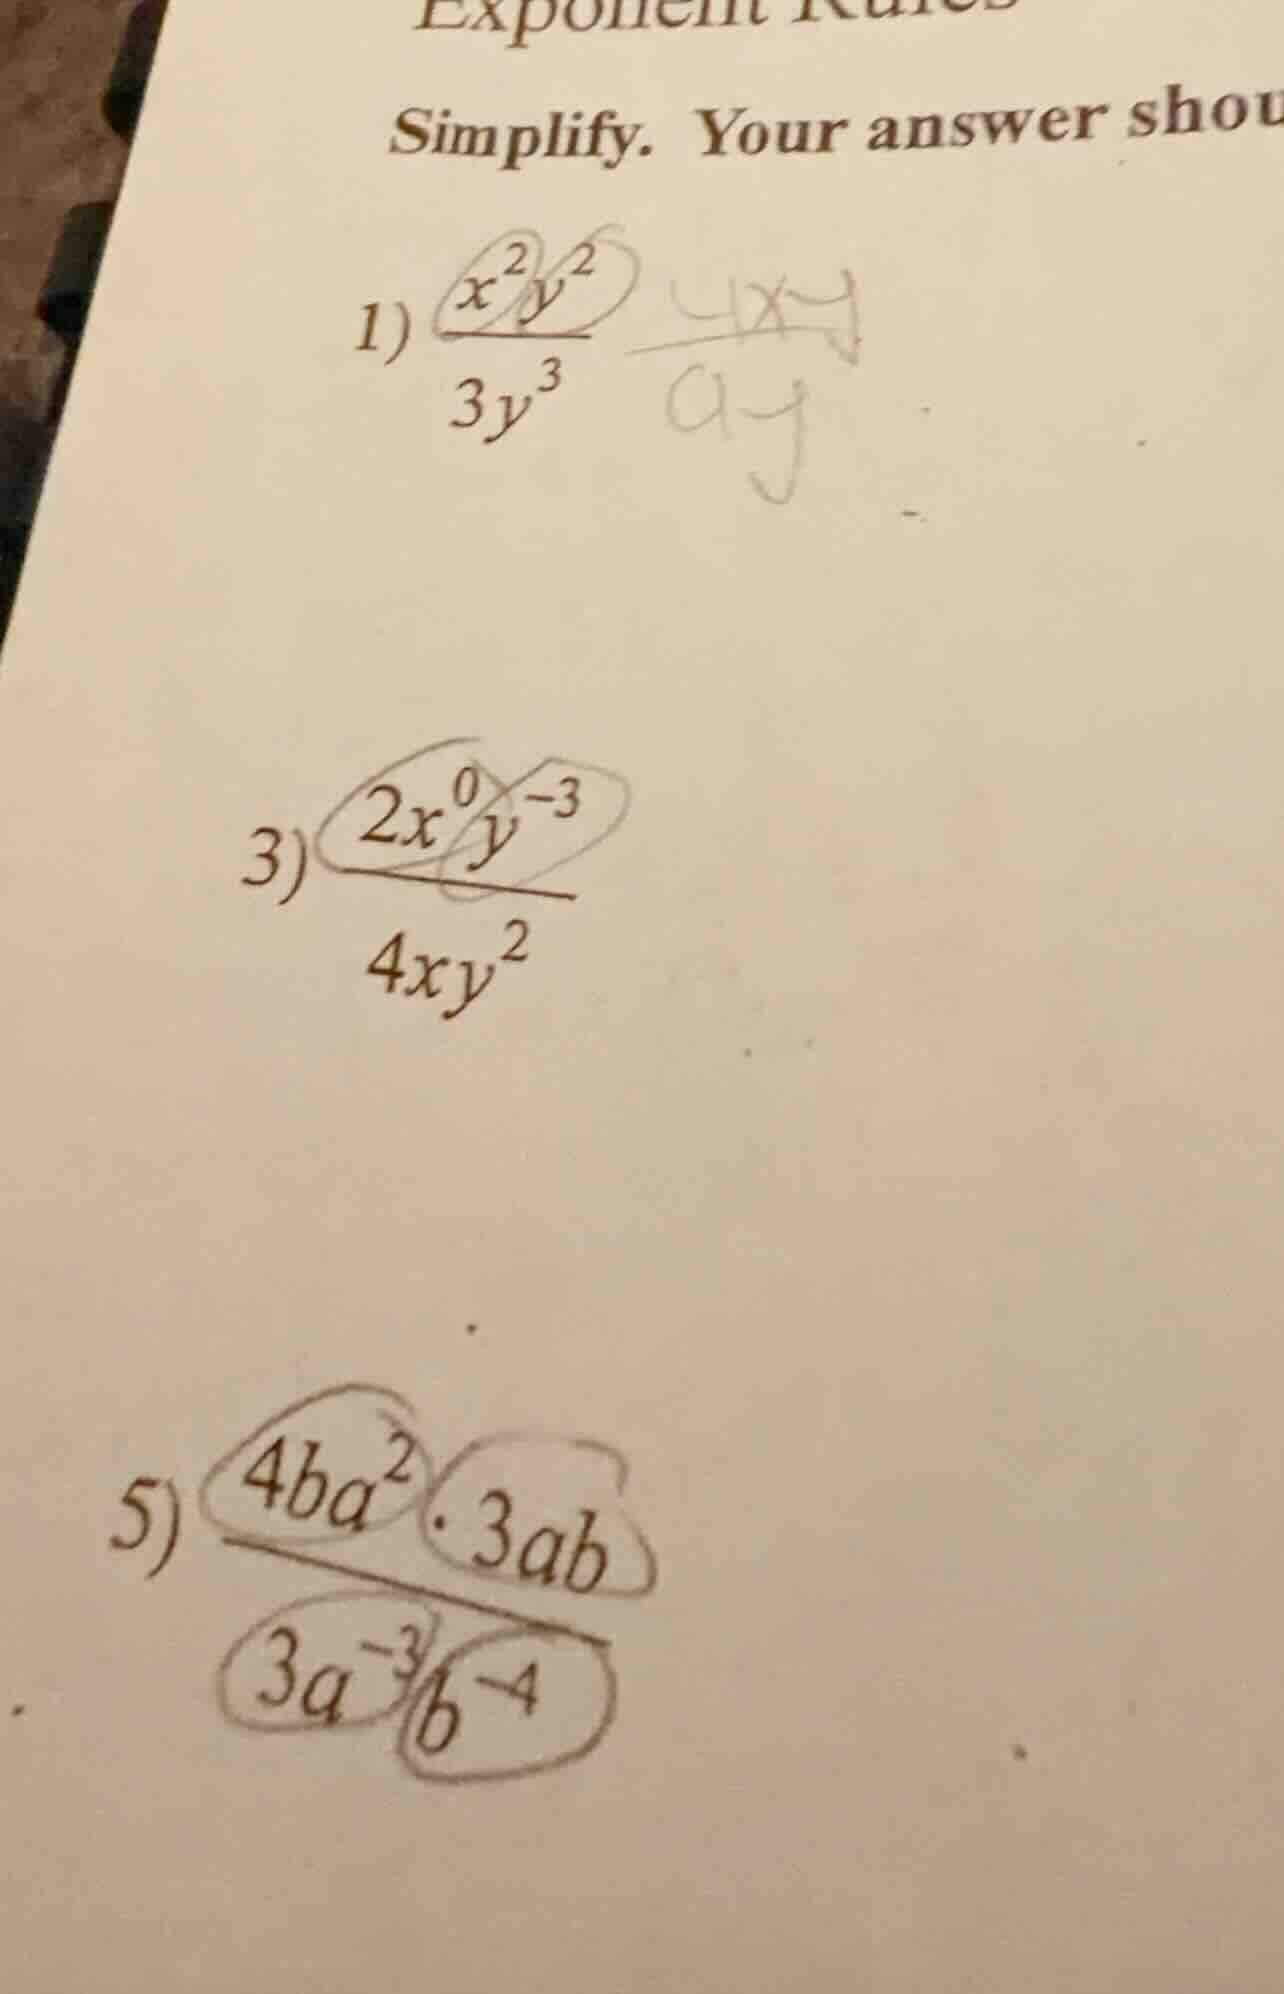 Exponent Rules
Simplify. Your answer shou
1) x²y² / 3y³ 4xy / ay
3) 2x⁰y⁻³ / 4xy²
5) 4ba² · 3ab / 3a⁻³b⁻⁴